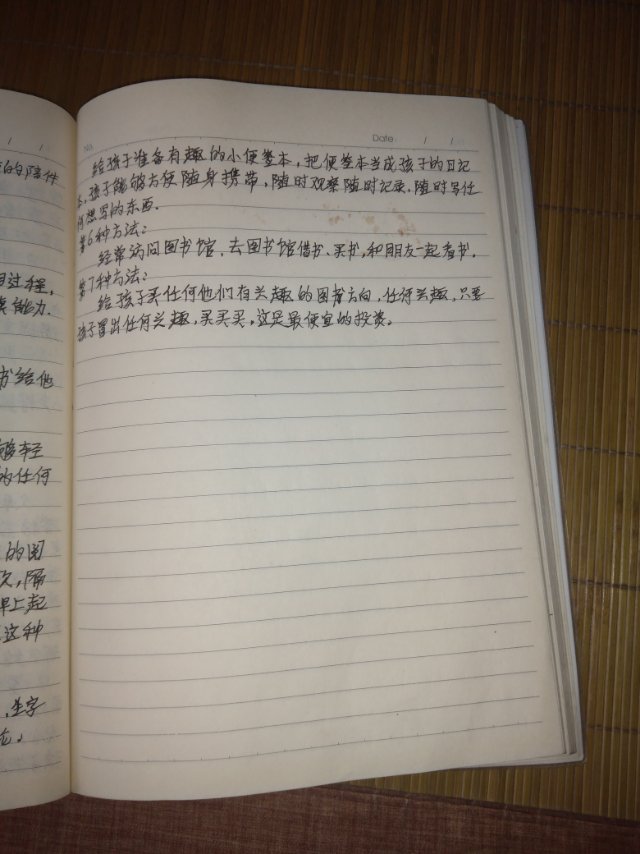 的陪伴
过程,
能力.
书给他
够轻
的任何
的图
次,隔
早上起
这种
,生字
No.
Date / /
给孩子准备有趣的小便签本,把便签本当成孩子的日记
本,孩子能够方便随身携带,随时观察随时记录,随时写任
何想写的东西.
第6种方法:
经常访问图书馆,去图书馆借书.买书,和朋友一起看书.
第7种方法:
给孩子买任何他们有兴趣的图书方向,任何兴趣,只要
孩子冒出任何兴趣,买买买,这是最便宜的投资。